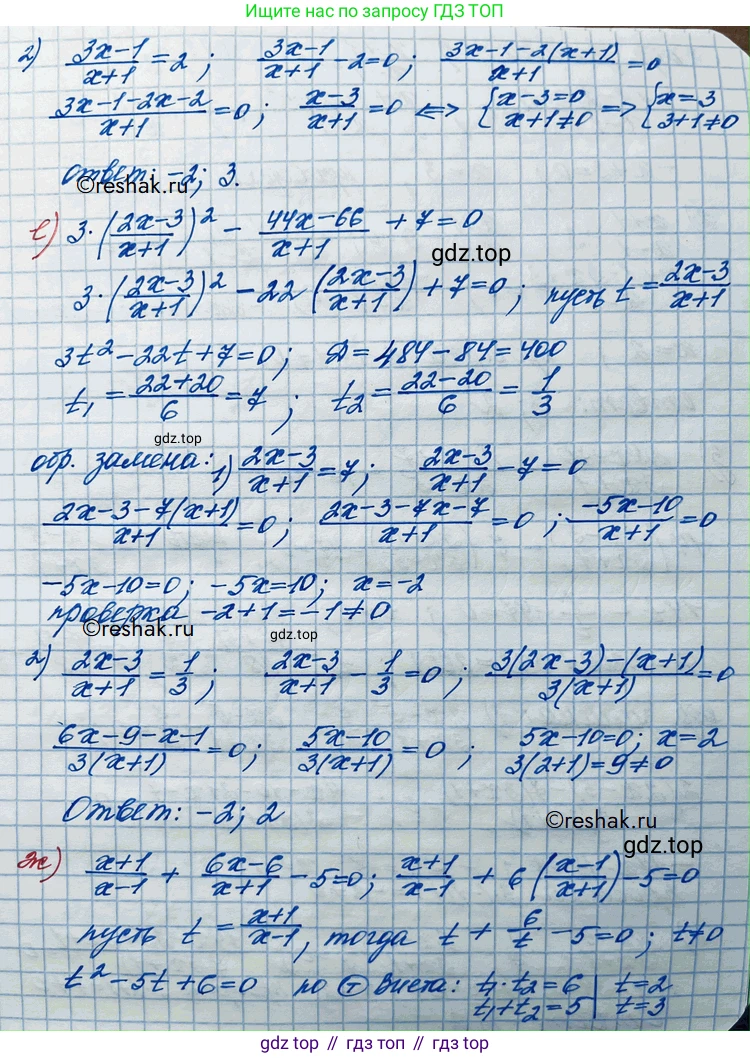 Ищите нас по запросу ГДЗ ТОП
2) (3x-1)/(x+1) = 2; (3x-1)/(x+1) - 2 = 0; (3x-1-2(x+1))/(x+1) = 0
(3x-1-2x-2)/(x+1) = 0; (x-3)/(x+1) = 0 <=> {x-3=0 x+1≠0 => {x=3 3+1≠0
Ответ: -2; 3.
©reshak.ru
е) 3·((2x-3)/(x+1))² - (44x-66)/(x+1) + 7 = 0
gdz.top
3·((2x-3)/(x+1))² - 22((2x-3)/(x+1)) + 7 = 0; пусть t = (2x-3)/(x+1)
3t² - 22t + 7 = 0; Д = 484 - 84 = 400
t₁ = (22+20)/6 = 7; t₂ = (22-20)/6 = 1/3
gdz.top
обр. замена: 1) (2x-3)/(x+1) = 7; (2x-3)/(x+1) - 7 = 0
(2x-3-7(x+1))/(x+1) = 0; (2x-3-7x-7)/(x+1) = 0; (-5x-10)/(x+1) = 0
-5x-10=0; -5x=10; x=-2
проверка -2+1=-1≠0
©reshak.ru gdz.top
2) (2x-3)/(x+1) = 1/3; (2x-3)/(x+1) - 1/3 = 0; (3(2x-3)-(x+1))/(3(x+1)) = 0
(6x-9-x-1)/(3(x+1)) = 0; (5x-10)/(3(x+1)) = 0; 5x-10=0; x=2
3(2+1)=9≠0
Ответ: -2; 2
©reshak.ru
gdz.top
ж) (x+1)/(x-1) + (6x-6)/(x+1) - 5 = 0; (x+1)/(x-1) + 6((x-1)/(x+1)) - 5 = 0
пусть t = (x+1)/(x-1), тогда t + 6/t - 5 = 0; t≠0
t² - 5t + 6 = 0 по Т Виета: t₁·t₂=6 | t=2
t₁+t₂=5 | t=3
gdz.top // gdz.top // gdz.top